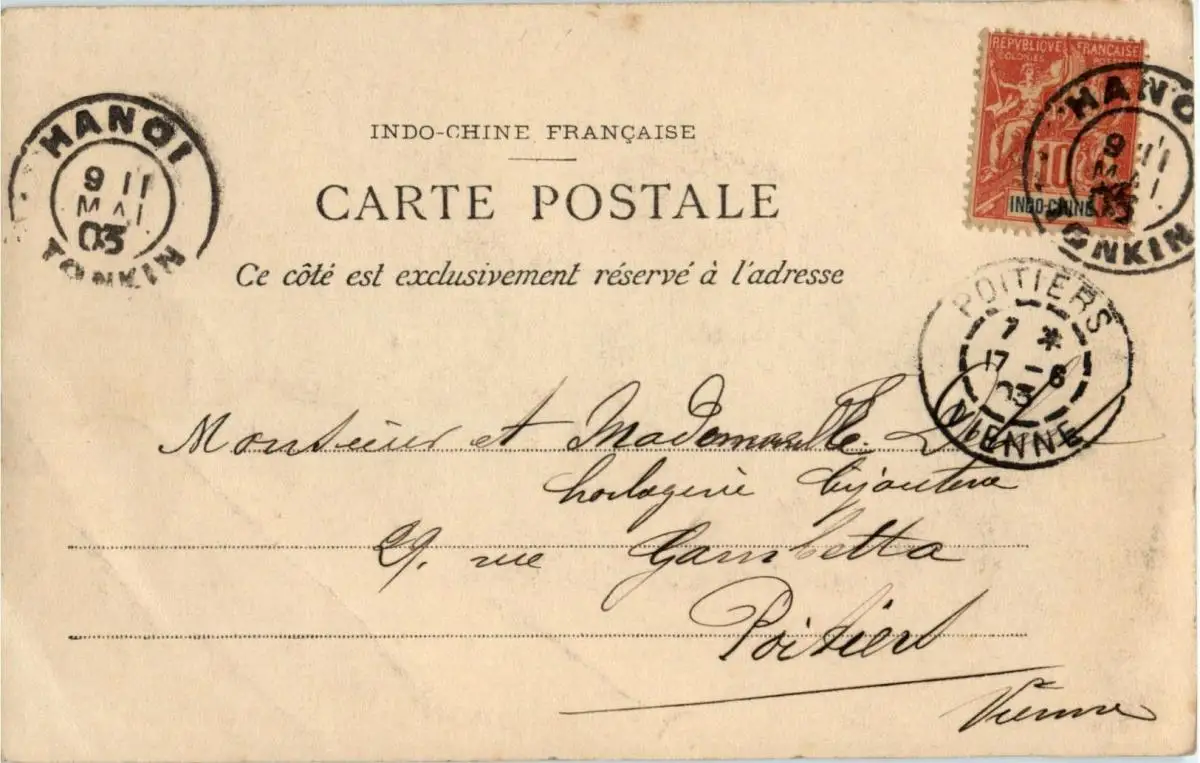 REPVBLIQUE FRANÇAISE
COLONIES POSTES
10
INDO-CHINE
HANOI
9 11
MAI
03
TONKIN
HANOI
9 11
MAI
03
TONKIN
INDO-CHINE FRANÇAISE
CARTE POSTALE
Ce côté est exclusivement réservé à l'adresse
POITIERS
7 *
17 - 6
03
VIENNE
Monsieur et Mademoiselle
horlogerie bijouterie
29. rue Gambetta
Poitiers
Vienne